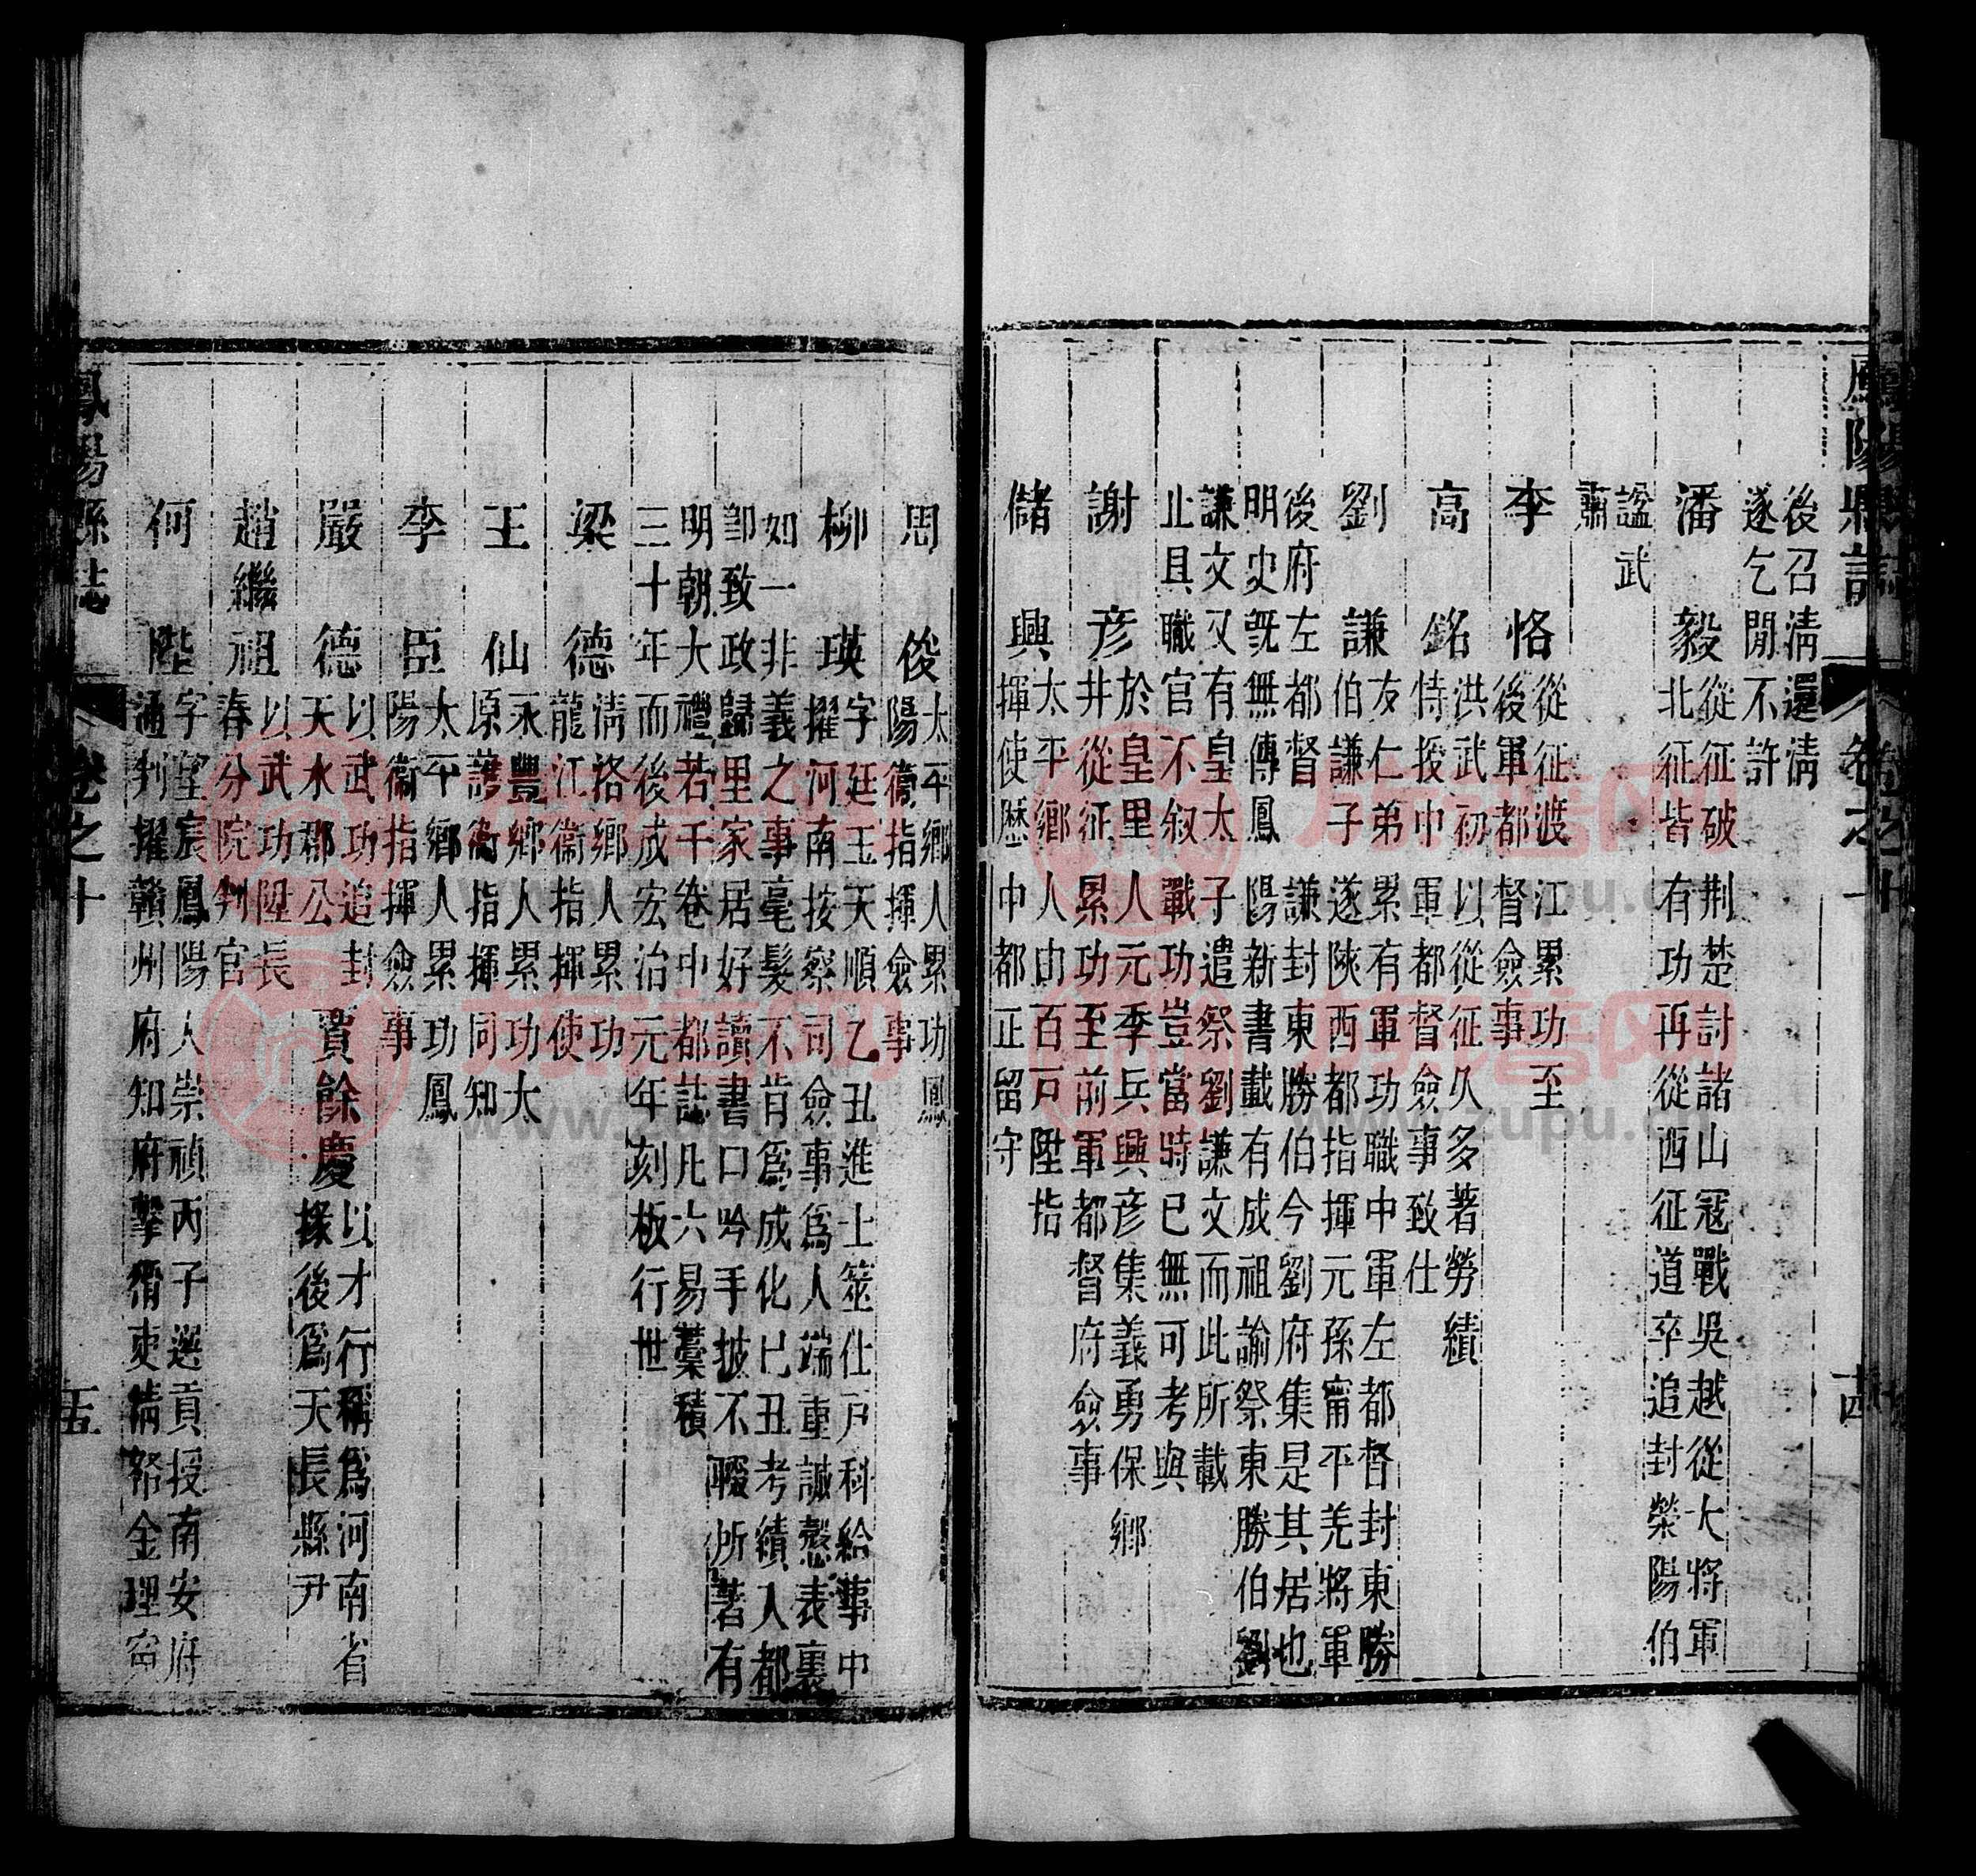 鳳陽縣誌
卷之十
古
後召淸還淸
遂乞閒不許
潘毅
從征破荆楚討諸山寇戰吳越從大將軍
北征皆有功再從西征道卒追封榮陽伯
諡武
肅
李恪
從征渡江累功至
後軍都督僉事
高銘
洪武初以從征久多著勞績
恃授中軍都督僉事致仕
劉謙
友仁弟累有軍功職中軍左都督封東勝
伯謙子遂陝西都指揮元孫甯平羌將軍
後府左都督謙封東勝伯今劉府集是其居也
明史旣無傳鳳陽新書載有成祖諭祭東勝伯劉
謙文又有皇太子遣祭劉謙文而此所載
止具職官不叙戰功豈當時已無可考與
謝彦
於皇里人元季兵興彦集義勇保鄉
井從征累功至前軍都督府僉事
儲興
太平鄉人由百戸陞指
揮使歷中都正留守
周俊
太平鄉人累功鳳
陽衞指揮僉事
柳瑛
字廷玉天順乙丑進士筮仕戸科給事中
擢河南按察司僉事爲人端重誠慤表裏
如一非義之事毫髮不肯爲成化已丑考績入都
卽致政歸里家居好讀書口吟手披不輟所著有
明朝大禮若千卷中都誌凡六易藁積
三十年而後成宏治元年刻板行世
梁德
淸洛鄉人累功
龍江衞指揮使
王仙
永豐鄉人累功太
原護衞指揮同知
李臣
太平鄉人累功鳳
陽衞指揮僉事
嚴德
以武功追封
天水郡公
賞餘慶
以才行稱爲河南省
掾後爲天長縣尹
趙繼祖
以武功陞長
春分院判官
何陛
字望宸鳳陽人崇禎丙子選貢授南安府
通判擢贛州府知府府擊猾吏淸帑金理
鳳陽縣誌
卷之十
五